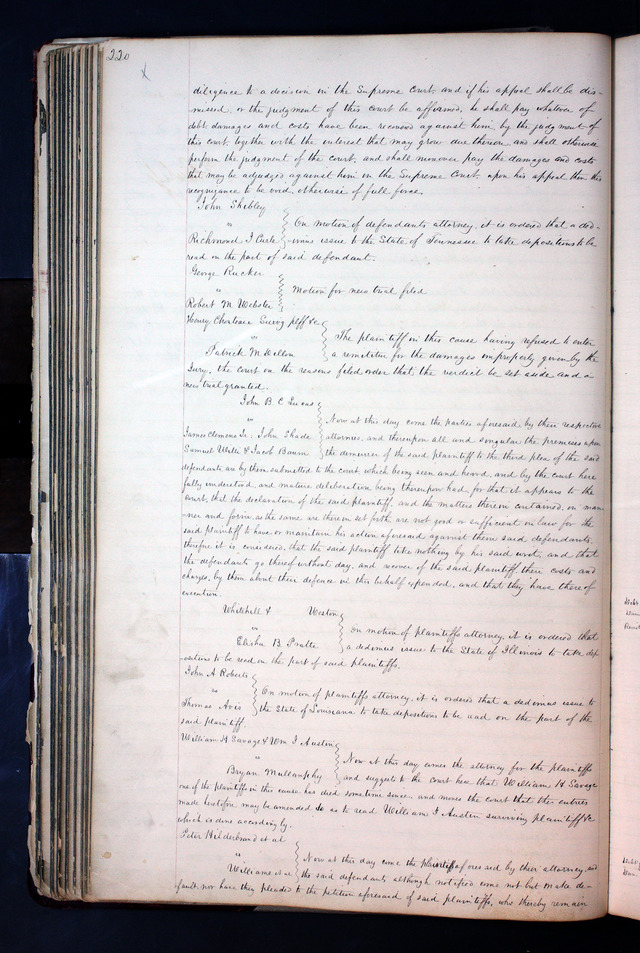 220
diligence to a decision in the Supreme Court and if his appeal shall be dis-
missed, or the judgment of this court be affirmed, he shall pay whatever of
debt, damages and costs have been recovered against him by the judgment of
this court, together with the interest that may grow due thereon, and shall otherwise
perform the judgment of the court, and shall moreover pay the damages and costs
that may be adjudged against him in the Supreme Court, upon his appeal then this
recognizance to be void, otherwise of full force.
John Shibley
"
On motion of defendants attorney, it is ordered that a ded-
Richmond J Curle
-imus issue to the State of Tennessee to take depositions to be
read on the part of said defendant.
George Rucker
"
Motion for new trial filed
Robert M. Webster
Henry Chouteau Survg ptff &c.
"
The plaintiff in this cause having refused to enter
Patrick M
a remeditur for the damages improperly given by the
Jury, the court on the reasons filed order that the verdict be set aside and a
new trial granted.
John B. C. Lucas
"
Now at this day come the parties aforesaid by their respective
James Clemens Jr. John Shade
attornies, and thereupon all and singular the premises upon
Samuel & Jacob Baum
the demurrer of the said plaintiff to the third plea of the said
defendants are by them submitted to the court, which being seen and heard, and by the court here
fully understood, and mature deliberation being thereupon had, for that it appears to the
court, that the declaration of the said plaintiff, and the matters therein contained, on man-
ner and form, as the same are therein set forth are not good or sufficient in law for the
said plaintiff to have or maintain his action aforesaid against them said defendants,
therefore it is considered, that the said plaintiff take nothing by his said wrote, and that
the defendants go thereof without day, and recover of the said plaintiff their costs and
charges, by them about their defence in this behalf expended, and that they have thereof
execution.
Whitehill & Weston
"
On motion of plaintiffs attorney, it is ordered that
Elisha B. Pratte
a dedimus issue to the State of Illinois to take dep
-ositions to be read on the part of said plaintiffs.
John A Roberts
"
On motion of plaintiffs attorney, it is ordered that a dedimus issue to
Thomas Avis
the State of Louisiana to take depositions to be read on the part of the
said plaintiff.
William H Savage & Wm J Austin
"
Now at this day comes the attorney for the plaintiffs
Bryan Mullanphy
and suggests to the court here that William H Savage
one of the plaintiffs in this cause has died sometime since, and moves the court that the entries
made heretofore may be amended so as to read William J Austin surviving plaintiff &c
which is done accordingly.
Peter Hilderbrand et al
"
Now at this day come the plaintiffs aforesaid by their attorney, and
Williams et al
the said defendants although notified come not but make de-
fault, nor have they pleaded to the petition aforesaid of said plaintiffs, who thereby remain